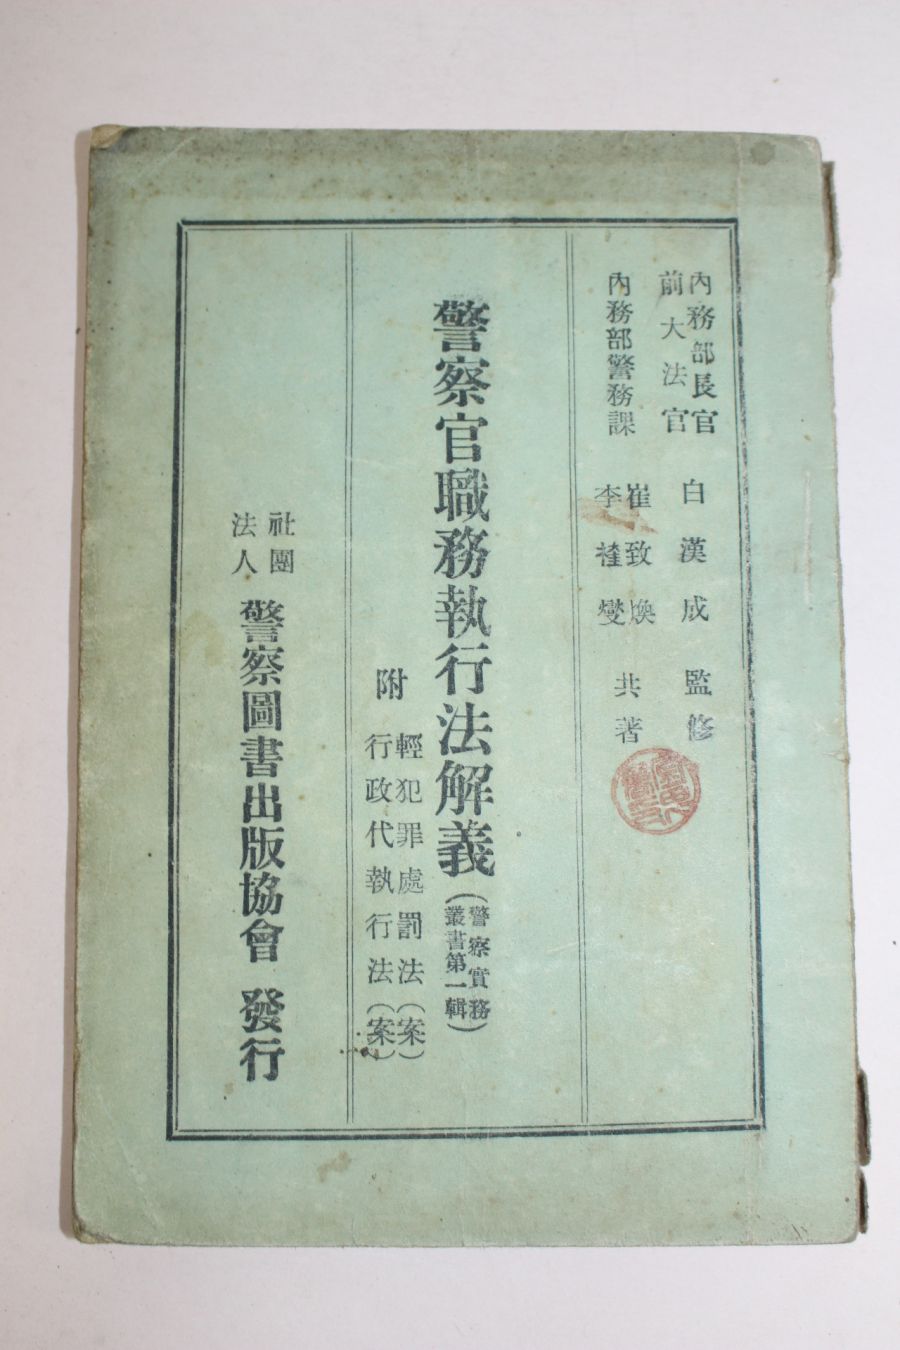 內務部長官
前大法官
白漢成 監修
內務部警務課
崔致煥
李𣛮燮
共著
警察官職務執行法解義
(警察實務
叢書第一輯)
附
輕犯罪處罰法(案)
行政代執行法(案)
社團
法人
警察圖書出版協會 發行